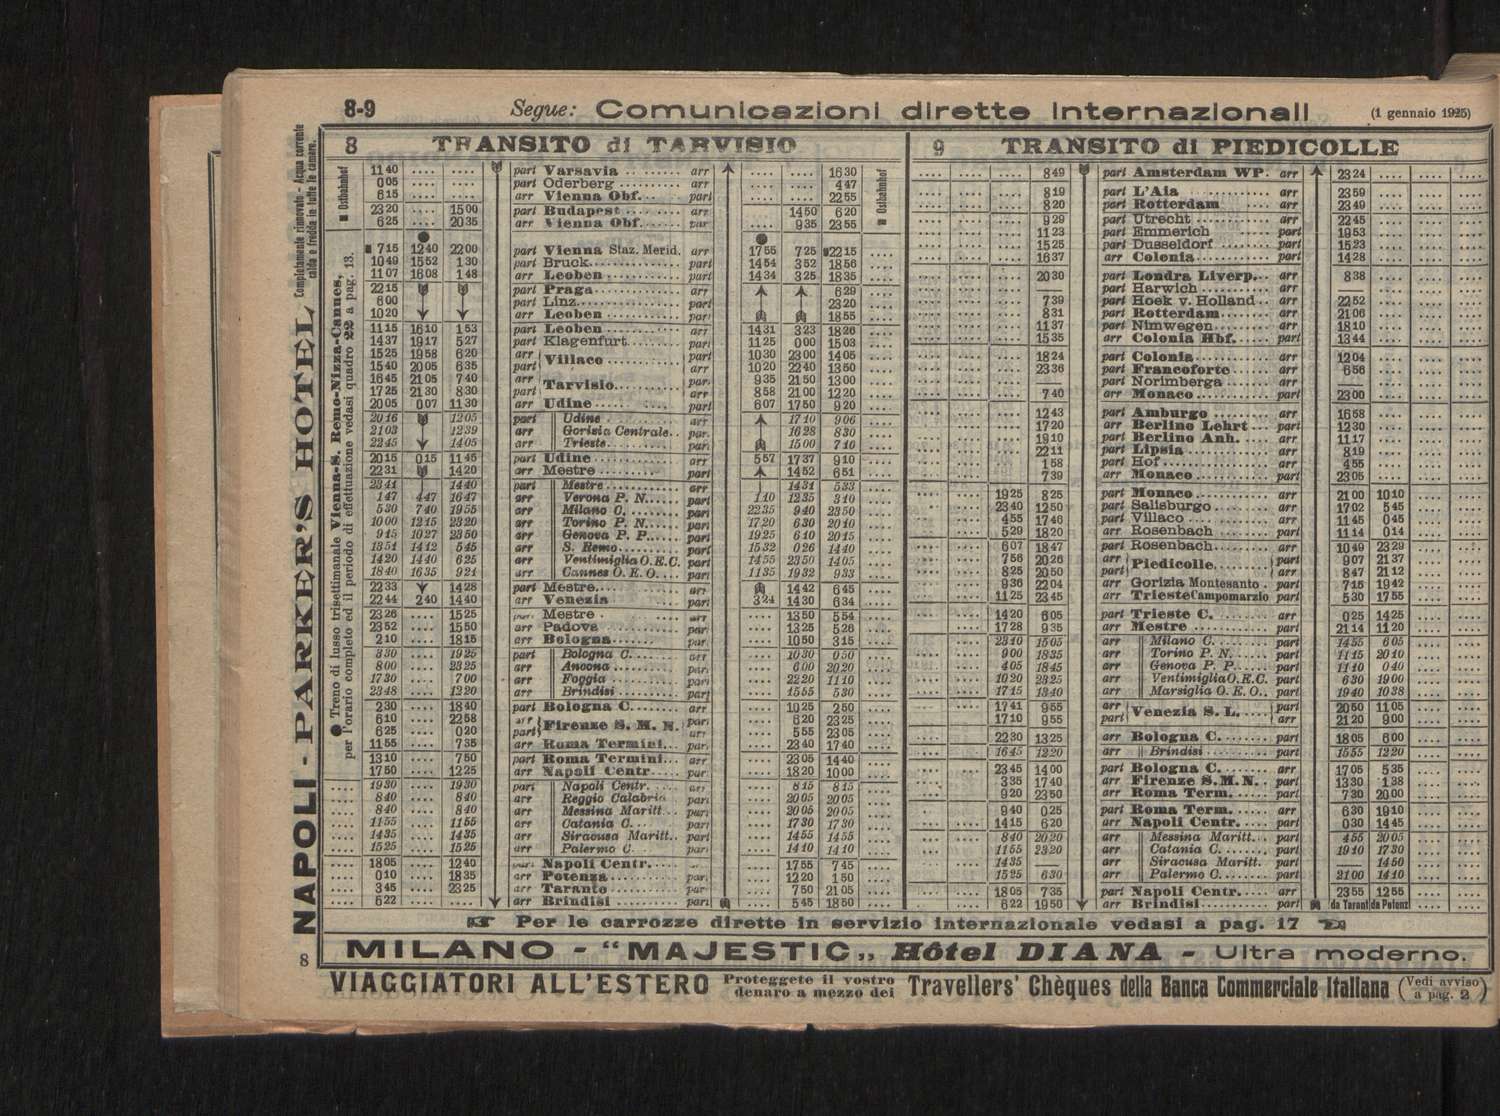 8-9 Segue: Comunicazioni dirette internazionali (1 gennaio 1925)
8 TRANSITO di TARVISIO
11 40 .... .... part Varsavia arr .... .... 16 30
0 05 .... .... part Oderberg arr .... .... 4 47
6 15 .... .... arr Vienna Obf. part .... .... 22 55
23 20 .... 15 00 part Budapest arr .... 14 50 6 20
6 25 .... 20 35 arr Vienna Obf. par .... 9 35 23 55
■ Ostbahnhof
■ Ostbahnhof
■ 7 15 12 40 22 00 part Vienna Staz. Merid. arr 17 55 7 25 ■22 15 ....
10 49 15 52 1 30 part Bruck part 14 54 3 52 18 56 ....
11 07 16 08 1 48 arr Leoben part 14 34 3 25 18 35 ....
22 15 part Praga arr 6 29 ....
6 00 part Linz part 23 20 ....
10 20 arr Leoben par 18 55 ....
11 15 16 10 1 53 part Leoben arr 14 31 3 23 18 26 ....
14 37 19 17 5 27 part Klagenfurt part 11 25 0 00 15 03 ....
15 25 19 58 6 20 arr Villaco part 10 30 23 00 14 05 ....
15 40 20 05 6 35 part arr 10 20 22 40 13 50 ....
16 45 21 05 7 40 arr Tarvisio par 9 35 21 50 13 00 ....
17 25 21 30 8 30 part arr 8 58 21 00 12 20 ....
20 05 0 07 11 30 arr Udine part 6 07 17 50 9 20 ....
20 16 12 05 part Udine arr 17 10 9 06 ....
21 03 12 39 arr Gorizia Centrale par. 16 28 8 30 ....
22 45 14 05 arr Trieste par 15 00 7 10 ....
20 15 0 15 11 45 part Udine arr 5 57 17 37 9 10 ....
22 31 14 20 arr Mestre part 14 52 6 51 ....
23 41 14 40 part Mestre arr 14 31 5 33 ....
1 47 4 47 16 47 arr Verona P. N. part 1 10 12 35 3 10 ....
5 30 7 40 19 55 arr Milano C. part 22 35 9 40 23 50 ....
10 00 12 15 23 20 arr Torino P. N. part 17 20 6 30 20 10 ....
9 15 10 27 23 50 arr Genova P. P. part 19 25 6 10 20 15 ....
13 51 14 12 5 45 arr S. Remo part 15 32 0 26 14 40 ....
14 20 14 40 6 25 arr Ventimiglia O.E.C. part 14 55 23 50 14 05 ....
18 40 16 35 9 21 arr Cannes O. E. O. part 11 35 19 32 9 33 ....
22 33 14 28 part Mestre arr 14 42 6 45 ....
22 44 2 40 14 40 arr Venezia part 3 24 14 30 6 34 ....
23 26 .... 15 25 Mestre arr .... 13 50 5 54 ....
23 52 .... 15 50 arr Padova par .... 13 25 5 26 ....
2 10 .... 18 15 arr Bologna par .... 10 50 3 15 ....
3 30 .... 19 25 part Bologna C. arr .... 10 30 0 50 ....
8 00 .... 23 25 arr Ancona par .... 6 00 20 20 ....
17 30 .... 7 00 arr Foggia par .... 22 20 11 10 ....
23 48 .... 12 20 arr Brindisi part .... 15 55 5 30 ....
2 30 .... 18 40 part Bologna C. arr .... 10 25 2 50 ....
6 10 .... 22 58 arr Firenze S. M. N. par .... 6 20 23 25 ....
6 25 .... 0 20 part arr .... 5 55 23 05 ....
11 55 .... 7 35 arr Roma Termini par .... 23 40 17 40 ....
13 10 .... 7 50 part Roma Termini arr .... 23 05 14 40 ....
17 50 .... 12 25 arr Napoli Centr. par .... 18 20 10 00 ....
.... 19 30 .... 19 30 part Napoli Centr. arr .... 8 15 8 15 ....
.... 8 40 .... 8 40 arr Reggio Calabria par .... 20 05 20 05 ....
.... 8 40 .... 8 40 arr Messina Maritt. par .... 20 05 20 05 ....
.... 11 55 .... 11 55 arr Catania C. par .... 17 30 17 30 ....
.... 14 35 .... 14 35 arr Siracusa Maritt. par .... 14 55 14 55 ....
.... 15 25 .... 15 25 arr Palermo C. par .... 14 10 14 10 ....
.... 18 05 .... 12 40 Napoli Centr. arr .... 17 55 7 45 ....
.... 0 10 .... 18 35 arr Potenza par .... 12 20 1 50 ....
.... 3 45 .... 23 25 arr Taranto par .... 7 50 21 05 ....
.... 6 22 .... .... arr Brindisi part .... 5 45 18 50 ....
9 TRANSITO di PIEDICOLLE
8 49 part Amsterdam WP. arr 23 24
8 19 part L'Aia arr 23 59
8 20 part Rotterdam arr 23 49
9 29 part Utrecht arr 22 45
11 23 part Emmerich part 19 53
15 25 part Dusseldorf arr 15 23
16 37 arr Colonia part 14 28
20 30 part Londra Liverp. arr 8 38
—— part Harwich arr ——
7 39 part Hoek v. Holland arr 22 52
8 31 part Rotterdam arr 21 06
11 37 part Nimwegen arr 18 10
15 35 arr Colonia Hbf. part 13 44
18 24 part Colonia arr 12 04
23 36 part Francoforte arr 6 56
—— part Norimberga arr ——
7 40 arr Monaco part 23 00
12 43 part Amburgo arr 16 58
17 20 arr Berlino Lehrt part 12 30
19 10 part Berlino Anh. arr 11 17
22 11 part Lipsia arr 8 19
1 58 part Hof arr 4 55
7 39 arr Monaco part 23 05
19 25 8 25 part Monaco arr 21 00 10 10
23 40 12 50 part Salisburgo arr 17 02 5 45
4 55 17 46 part Villaco arr 11 45 0 45
5 29 18 20 arr Rosenbach part 11 14 0 14
6 07 18 47 part Rosenbach arr 10 49 23 29
7 56 20 26 arr Piedicolle part 9 07 21 37
8 25 20 50 part arr 8 47 21 12
9 36 22 04 arr Gorizia Montesanto part 7 15 19 42
11 25 23 45 arr Trieste Campomarzio part 5 30 17 55
14 20 6 05 part Trieste C. arr 0 25 14 25
17 28 9 35 arr Mestre part 21 14 11 20
23 10 15 05 arr Milano C. part 14 55 6 05
9 00 18 35 arr Torino P. N. part 11 15 20 10
4 05 18 45 arr Genova P. P. part 11 10 0 40
10 20 23 25 arr Ventimiglia O.E.C. part 6 30 19 00
17 15 13 40 arr Marsiglia O. E. O. part 19 40 10 38
17 41 9 55 arr Venezia S. L. part 20 50 11 05
17 10 9 55 part arr 21 20 9 00
22 30 13 25 arr Bologna C. part 18 05 6 00
16 45 12 20 arr Brindisi part 15 55 12 20
23 45 14 00 part Bologna C. arr 17 05 5 35
3 35 17 40 arr Firenze S.M.N. part 13 30 1 38
9 20 23 50 arr Roma Term. part 7 30 20 00
9 40 0 25 part Roma Term. arr 6 30 19 10
14 15 6 20 arr Napoli Centr. part 0 30 14 45
8 40 20 20 arr Messina Maritt. part 4 55 20 05
11 55 23 20 arr Catania C. part 19 10 17 30
14 35 —— arr Siracusa Maritt. part —— 14 50
15 25 6 30 arr Palermo C. part 21 00 14 10
18 05 7 35 part Napoli Centr. arr 23 55 12 55
6 22 19 50 arr Brindisi part da Tarant da Potenz
☞ Per le carrozze dirette in servizio internazionale vedasi a pag. 17 ☜
MILANO - “MAJESTIC„ Hôtel DIANA - Ultra moderno.
VIAGGIATORI ALL'ESTERO Proteggete il vostro denaro a mezzo dei Travellers' Chèques della Banca Commerciale Italiana (Vedi avviso a pag. 2)
8
NAPOLI - PARKER'S HOTEL Completamente rinnovato - Acqua corrente calda e fredda in tutte le camere.
● Treno di lusso trisettimanale Vienna-S. Remo-Nizza-Cannes,
per l'orario completo ed il periodo di effettuazione vedasi quadro 22 a pag. 13.